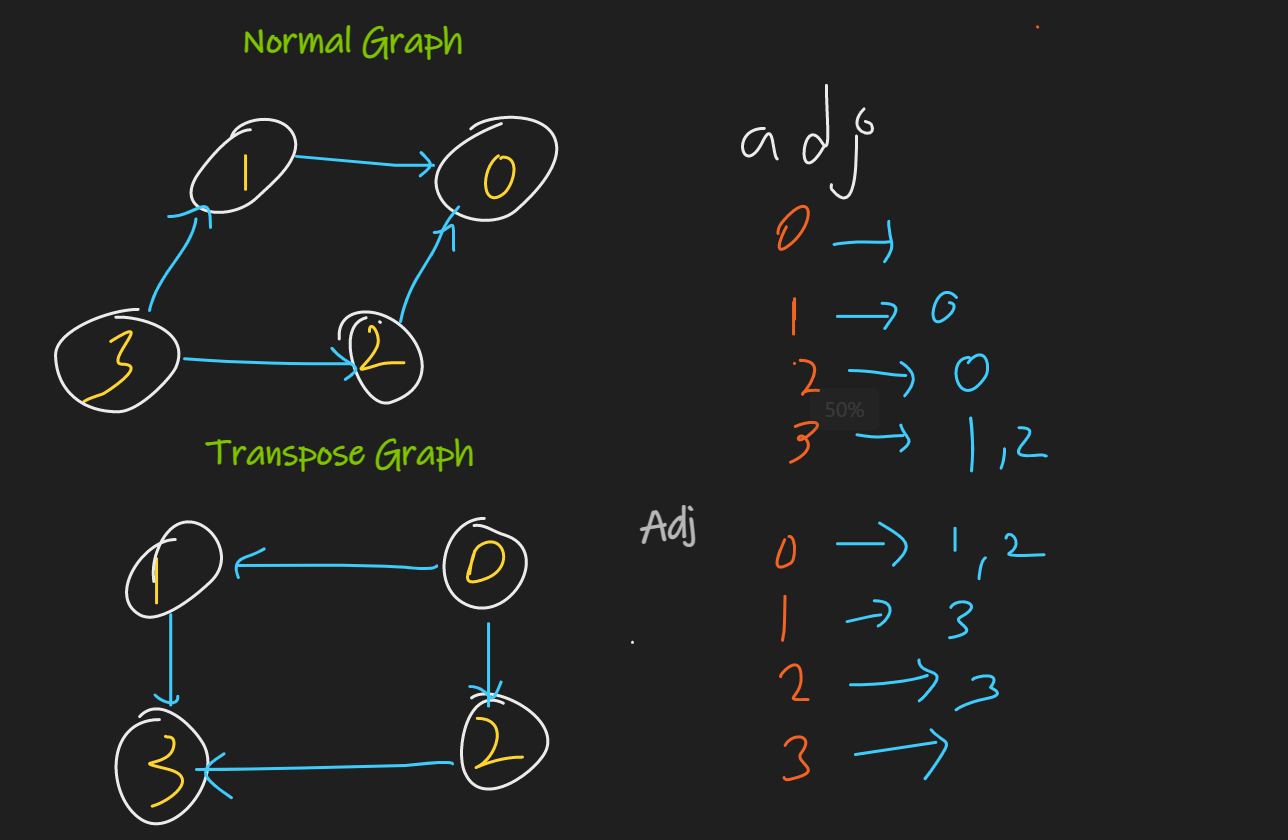 Normal Graph
1
0
3
2
adj
0 →
1 → 0
2 → 0
50%
3 → 1,2
Transpose Graph
1
0
3
2
Adj
0 → 1,2
1 → 3
2 → 3
3 →